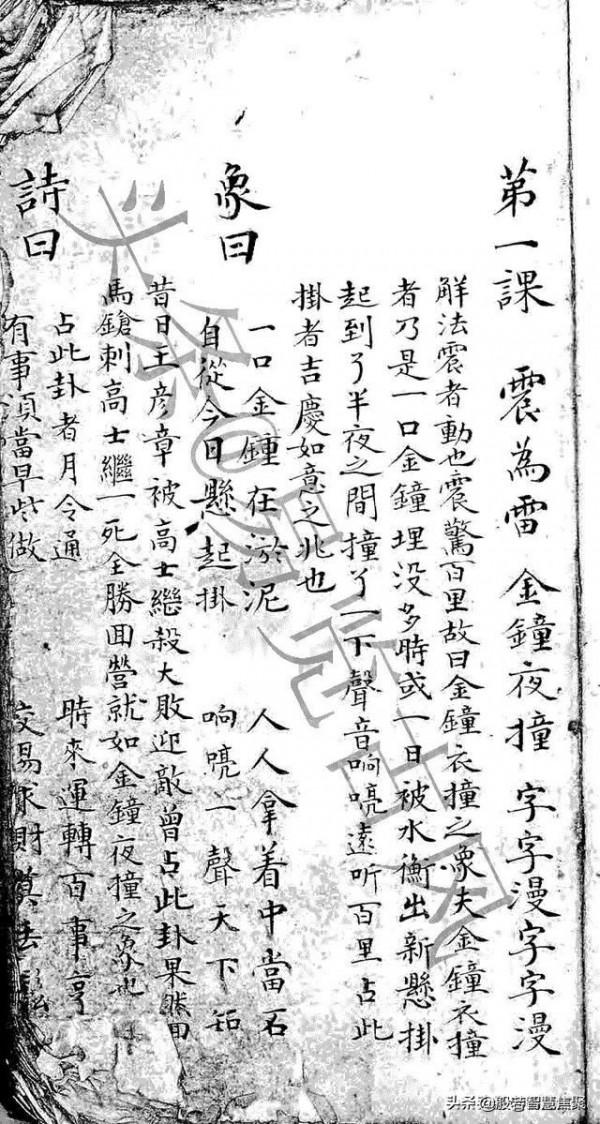 第一課 震為雷 金鐘夜撞 字字漫字字漫
解法震者動也震驚百里故曰金鐘衣撞之象夫金鐘衣撞
者乃是一口金鐘埋没多時或一日被水衡出新懸掛
起到了半夜之間撞了一下聲音响喨遠听百里占此
掛者吉慶如意之兆也
象曰 一口金鍾在淤泥 人人拿着中當石
自從今日懸起掛 响喨一聲天下知
昔日王彦章被高士繼殺大敗迎敵曾占此卦果然
馬鎗刺高士繼一死全勝回營就如金鐘夜撞之象也
詩曰 占此卦者月令通 時來運轉百事亨
有事須當早些做 交易求財莫
头条@般若智慧焦聚